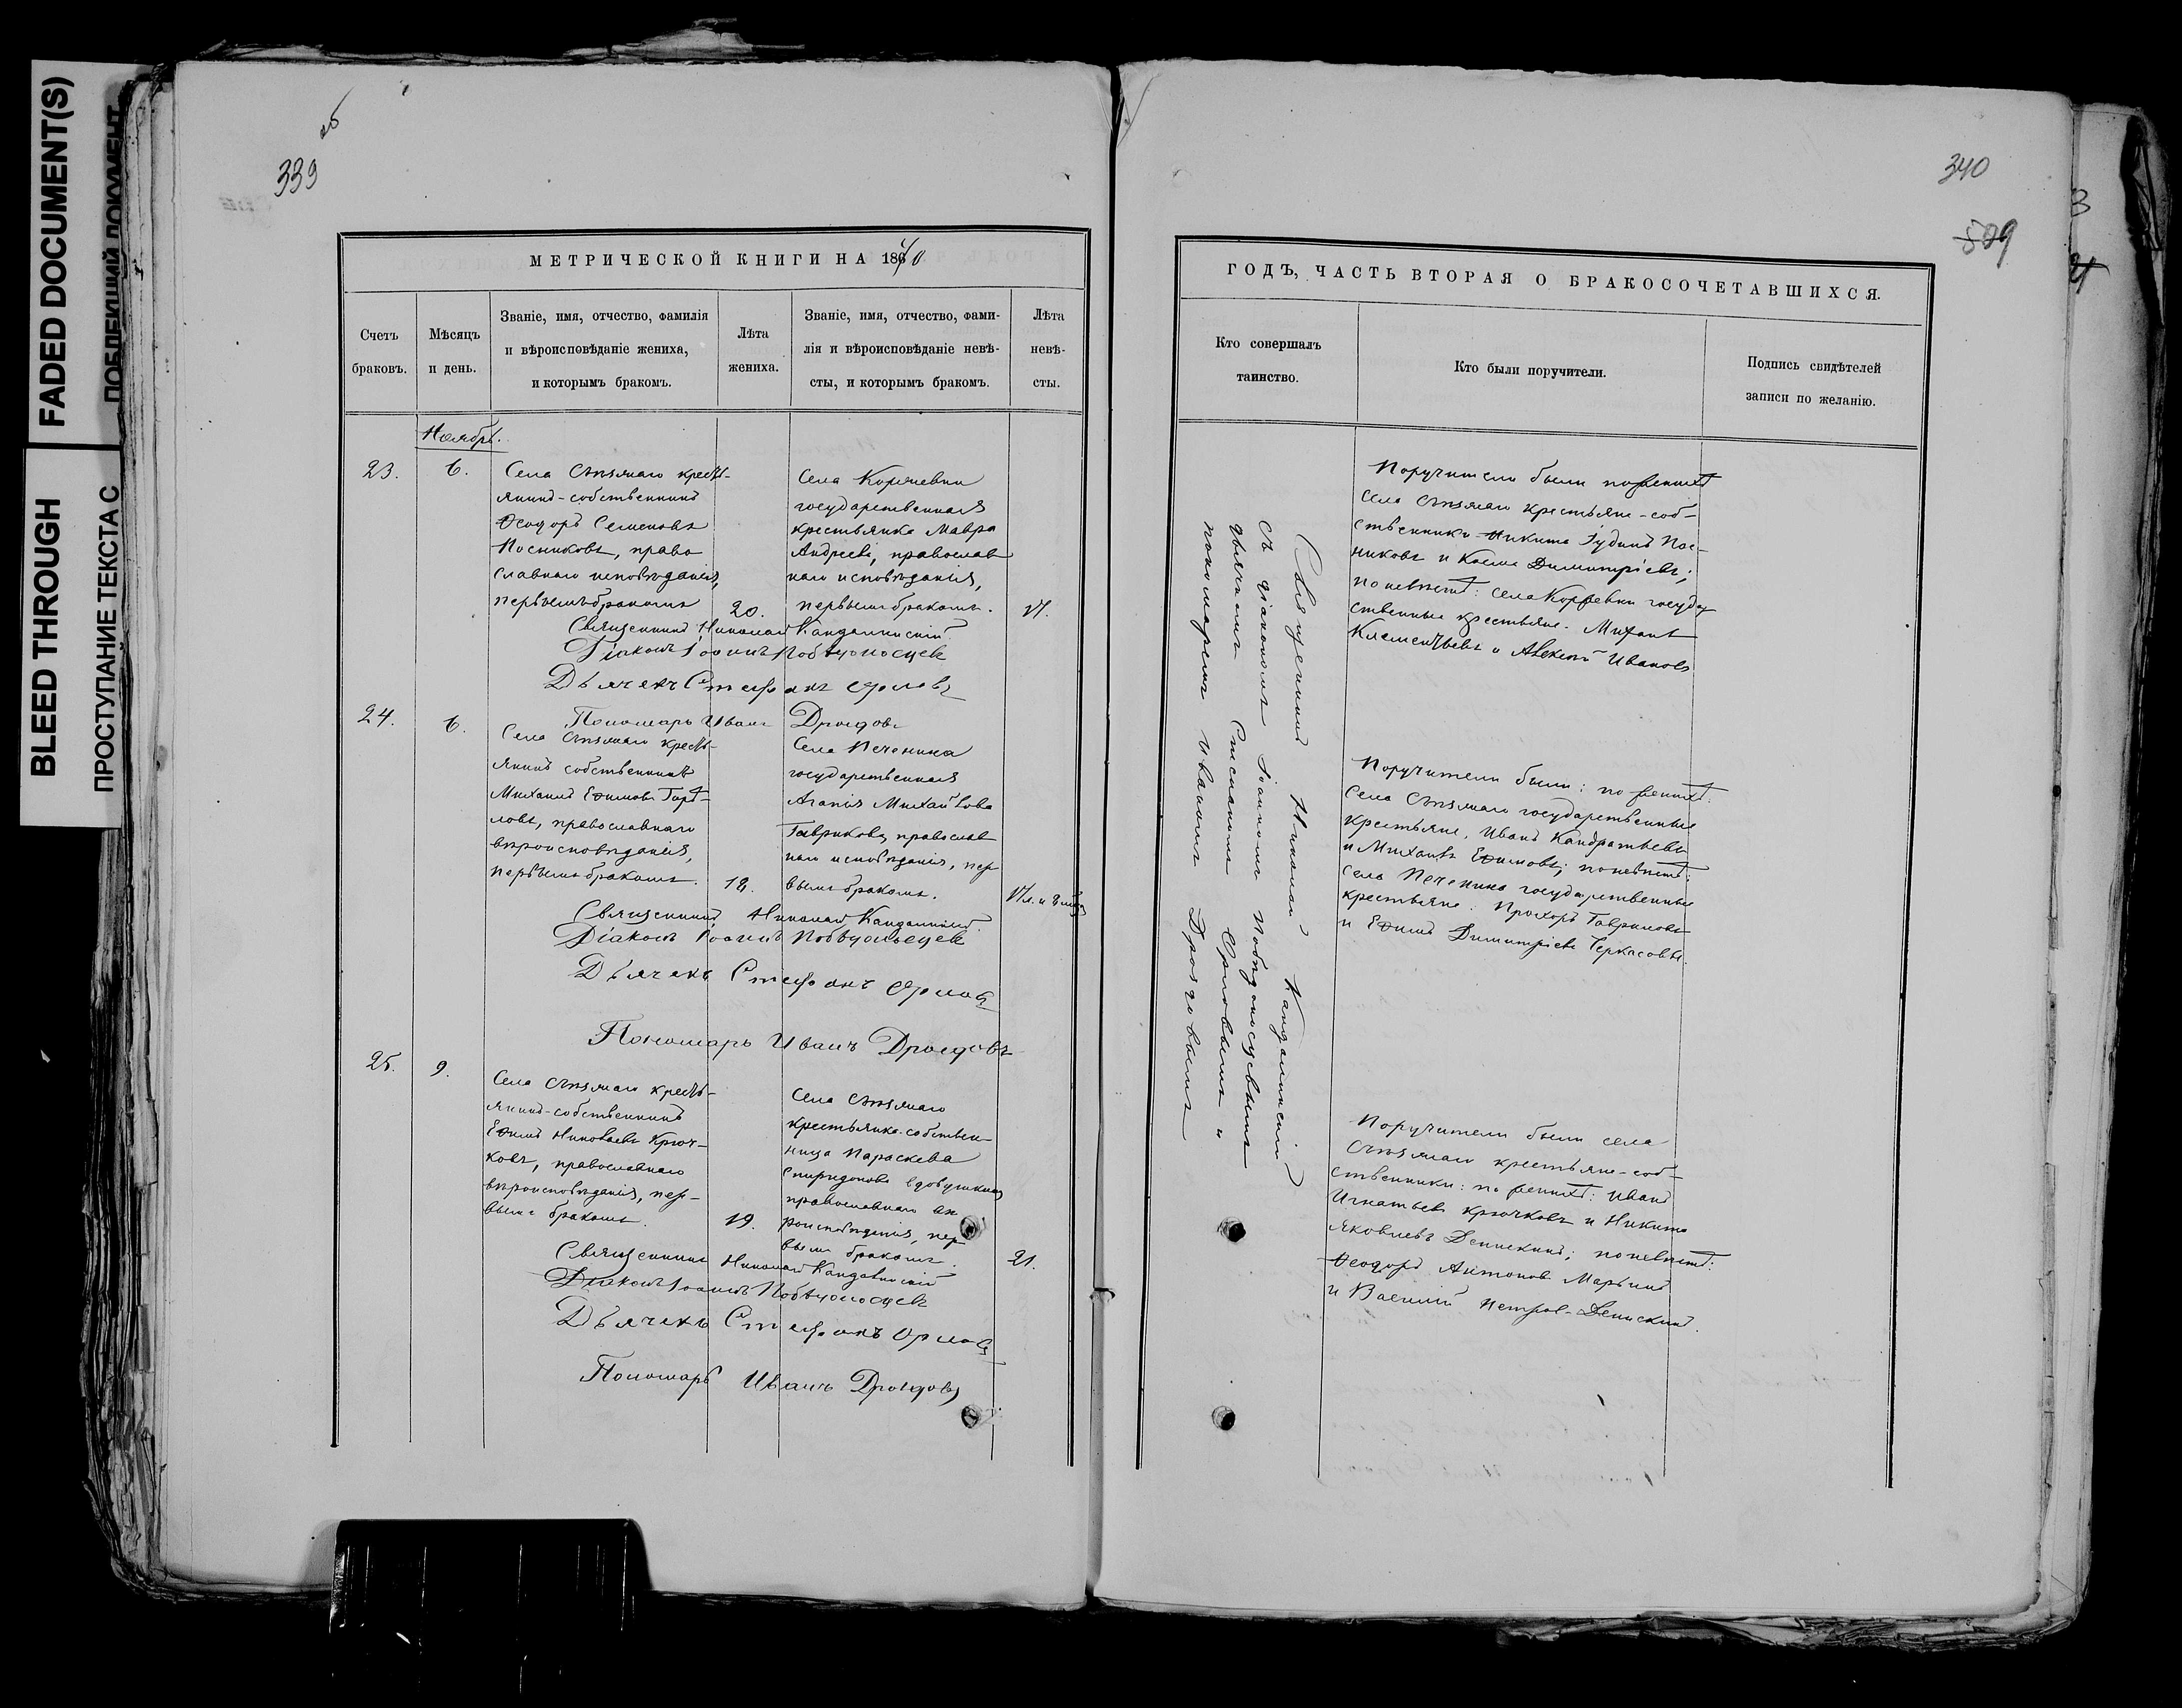 FADED DOCUMENT(S)
BLEED THROUGH
ПРОСТУПАНИЕ ТЕКСТА С
339
МЕТРИЧЕСКОЙ КНИГИ НА 1870
Счетъ браковъ.
Мѣсяцъ и день.
Званіе, имя, отчество, фамилія
и вѣроисповѣданіе жениха,
и которымъ бракомъ.
Лѣта жениха.
Званіе, имя, отчество, фами-
лія и вѣроисповѣданіе невѣ-
сты, и которымъ бракомъ.
Лѣта невѣ-
сты.
Ноябрь.
23.
6.
Села крестъ-
янинъ-собственникъ
Ѳеодоръ Семеновъ
Посниковъ, право
славнаго исповѣданія,
первымъ бракомъ
20.
Села
государственная
крестьянка Мавра
Андреева, православ
наго исповѣданія,
первымъ бракомъ.
17.
Священникъ Николай
Діаконъ Іоаннъ Побѣдоносцевъ
Дьячекъ Стефанъ Орловъ
Пономарь Иванъ Дроздовъ
24.
6.
Села крестъ-
янинъ собственникъ
Михаилъ Ефимовъ
ловъ, православнаго
вѣроисповѣданія,
первымъ бракомъ.
18.
Села Печенина
государственная
Агапія Михайлова
Гаврикова, православ
наго исповѣданія, пер
вымъ бракомъ.
Священникъ Николай
Діаконъ Іоаннъ Побѣдоносцевъ
Дьячекъ Стефанъ Орловъ
Пономарь Иванъ Дроздовъ
25.
9.
Села крестъ-
янинъ-собственникъ
Ефимъ Крюч-
ковъ, православнаго
вѣроисповѣданія, пер-
вымъ бракомъ.
19.
Села
крестьянка-собствен-
ница Параскева
Спиридонова
православнаго вѣ
роисповѣданія, пер
вымъ бракомъ.
21.
Священникъ Николай
Діаконъ Іоаннъ Побѣдоносцевъ
Дьячекъ Стефанъ Орловъ
Пономарь Иванъ Дроздовъ
340
509
ГОДЪ, ЧАСТЬ ВТОРАЯ О БРАКОСОЧЕТАВШИХСЯ.
Кто совершалъ
таинство.
Кто были поручители.
Подпись свидѣтелей
записи по желанію.
Священникъ Николай
съ діакономъ Іоанномъ Побѣдоносцевымъ
дьячкомъ Стефаномъ Орловымъ и
пономаремъ Иваномъ Дроздовымъ
Поручители были по женихѣ
Села крестьяне-соб-
ственники Никита Пос-
никовъ и Косма Димитріевъ;
по невѣстѣ: села госуда
ственные крестьяне. Михаилъ
Клементьевъ и Алексѣй Ивановъ
Поручители были: по женихѣ:
Села государственные
крестьяне, Иванъ Кандратьевъ
и Михаилъ Ефимовъ; по невѣстѣ:
Села Печенина государственные
крестьяне. Прохоръ Гавриковъ
и Ефимъ Димитріевъ Черкасовъ.
Поручители были села
крестьяне-соб-
ственники: по женихѣ: Иванъ
Игнатьевъ Крючковъ и Никита
Яковлевъ Денискинъ; по невѣстѣ:
Ѳеодоръ Антоновъ Марьинъ
и Василій Петровъ Денискинъ.